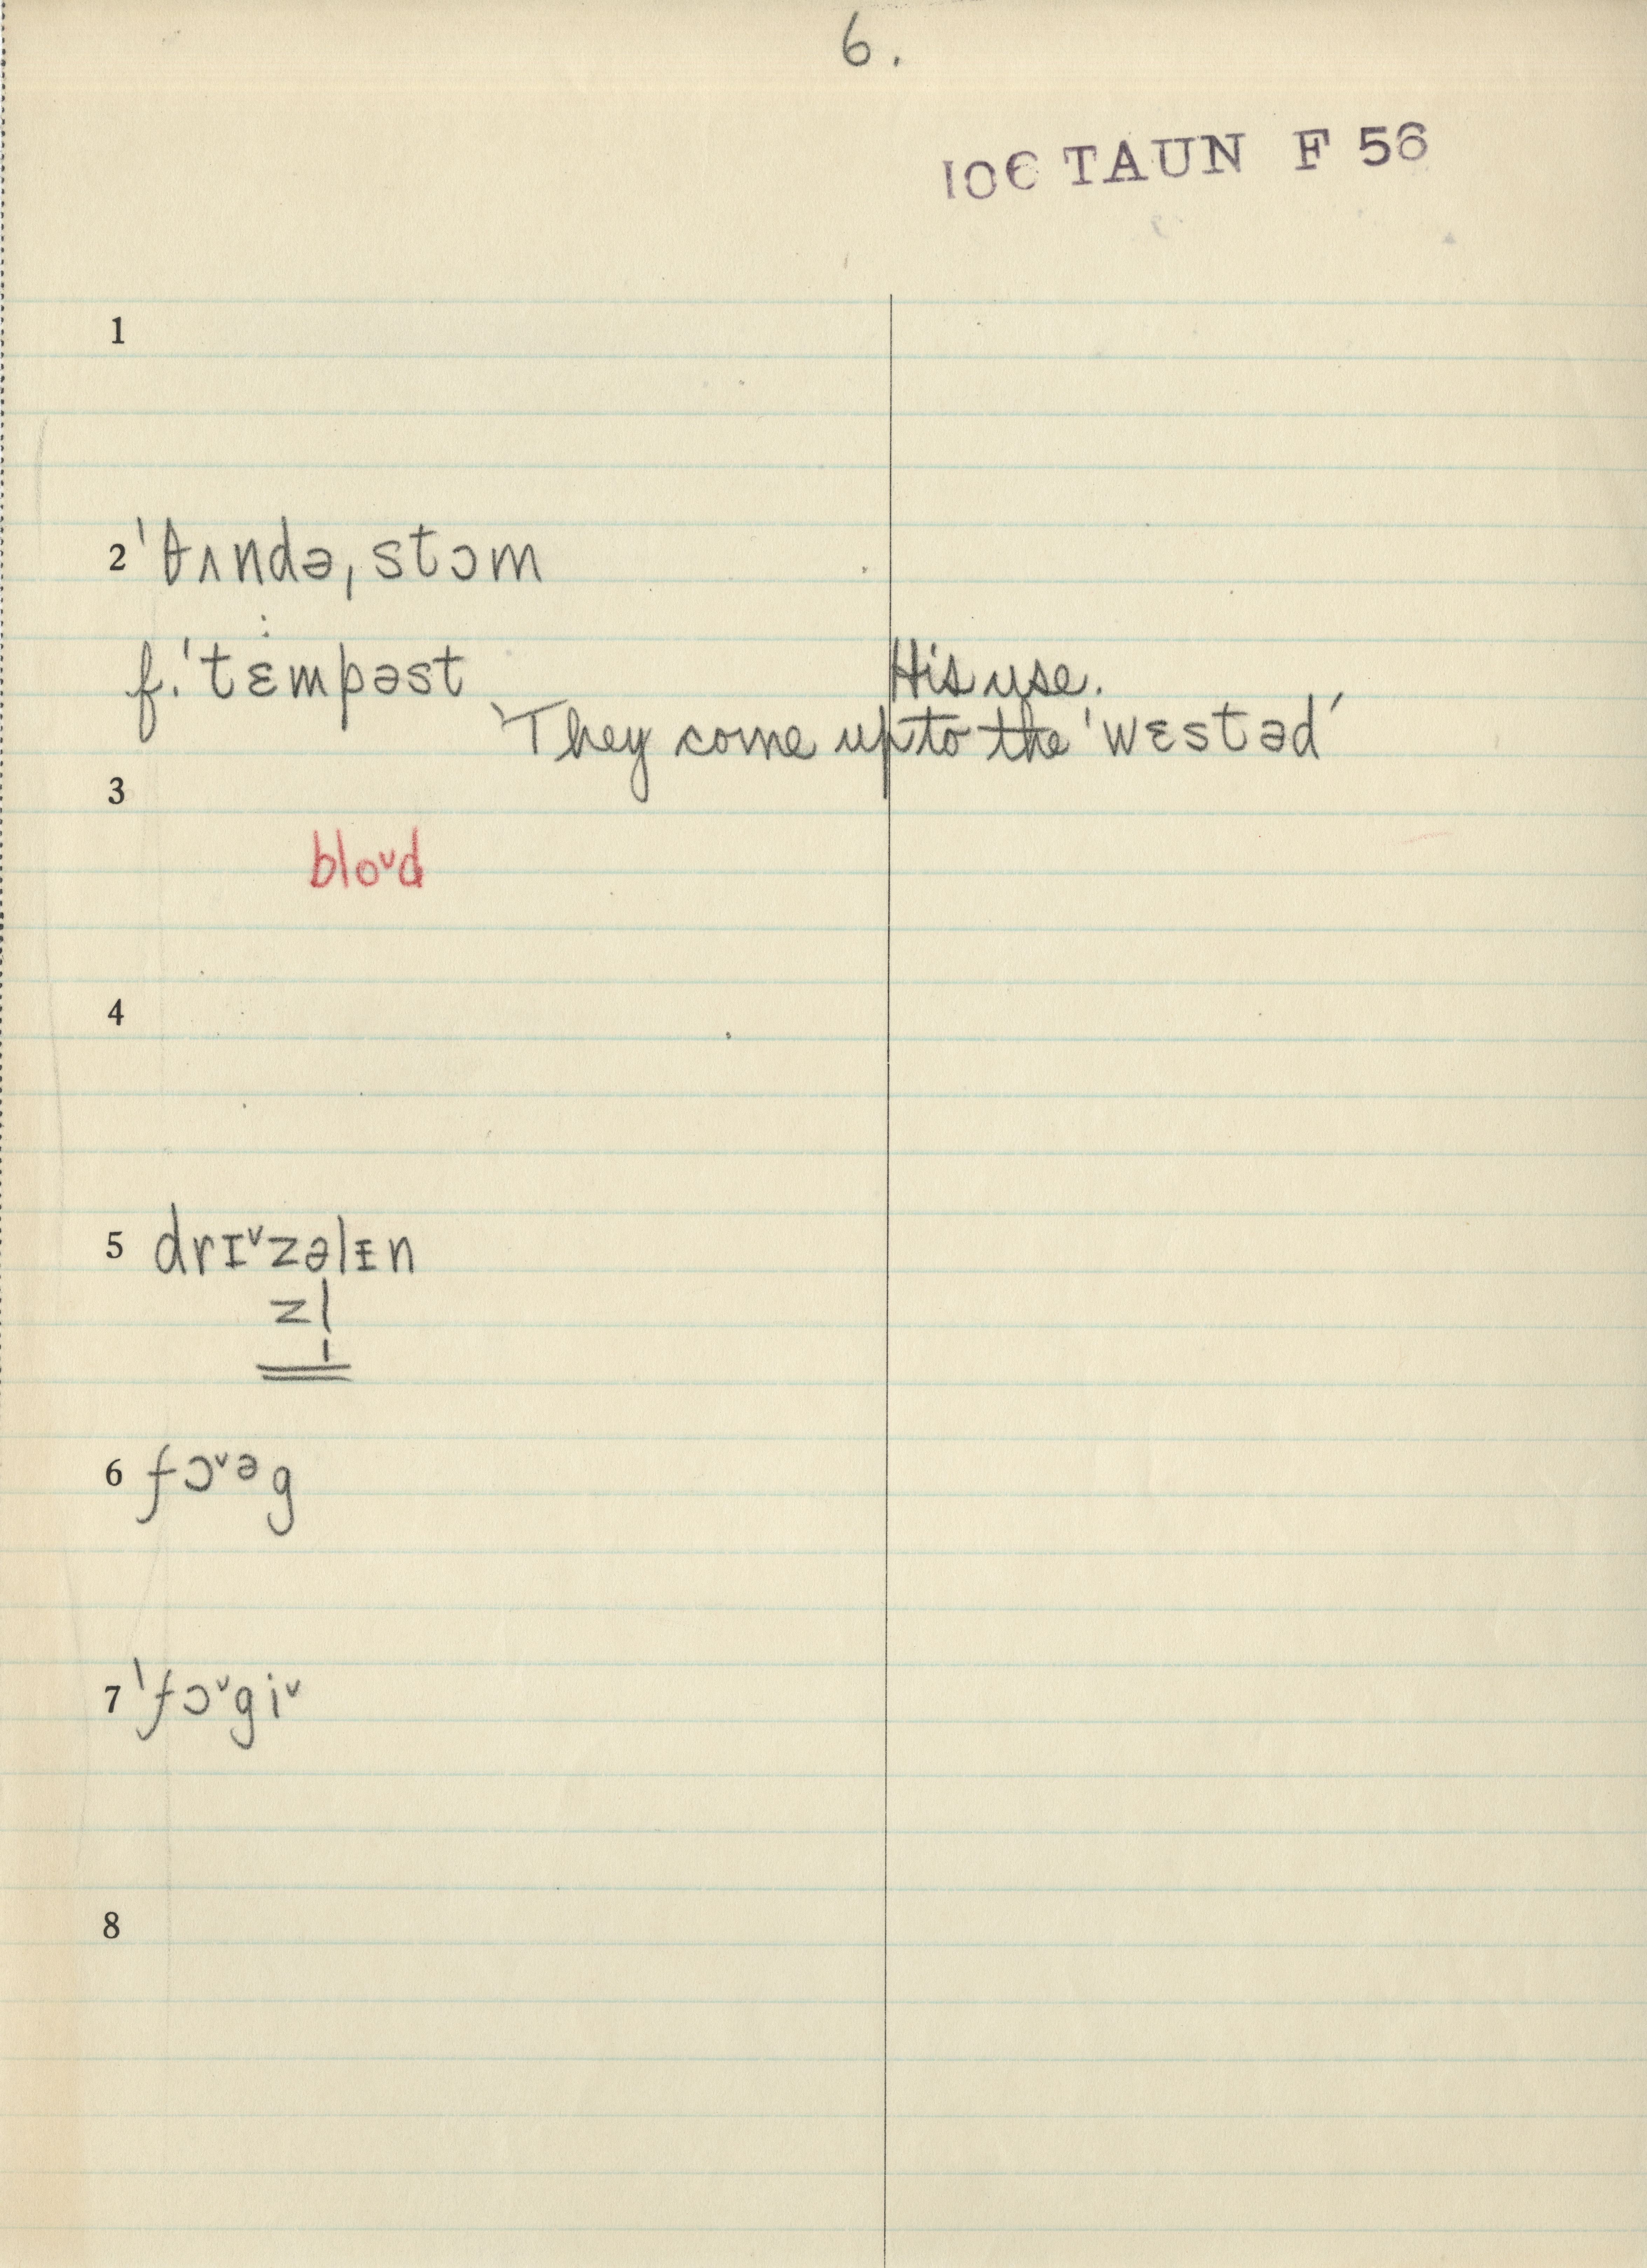 6.
106 TAUN F 56
1
2 ˈθʌndəˌstɔm
f. ˈtɛmpəst His use.
‵They come up to the ˈwɛstəd′
3
bloᵛd
4
5 drɪᵛzəlɪ̵n
zl̩
6 fɔᵛᵊg
7 ˈfɔᵛgiᵛ
8